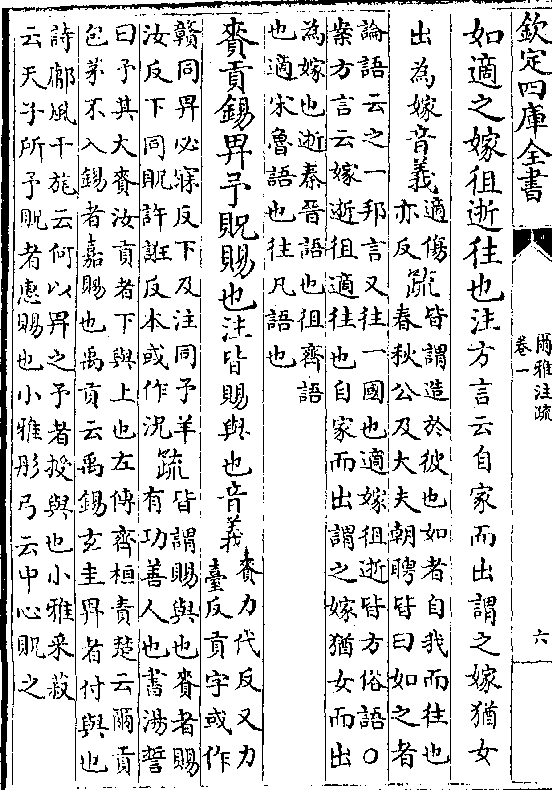 欽定四庫全書
爾雅注疏
卷一
六
如適之嫁徂逝往也注方言云自家而出謂之嫁猶女
出為嫁音義適傷亦反疏皆謂造於彼也如者自我而往也
春秋公及大夫朝聘皆曰如之者
論語云之一邦言又往一國也適嫁徂逝皆方俗語〇
案方言云嫁逝徂適往也自家而出謂之嫁猶女而出
為嫁也逝秦晉語也徂齊語
也適宋魯語也往凡語也
賚貢錫畀予貺賜也注皆賜與也音義賚力代反又力
臺反貢字或作
贛同畀必寐反下及注同予羊
汝反下同貺許誑反本或作況疏皆謂賜與也賚者賜
有功善人也書湯誓
曰予其大賚汝貢者下與上也左傳齊桓責楚云爾貢
包茅不入錫者嘉賜也禹貢云禹錫玄圭畀者付與也
詩鄘風干旄云何以畀之予者授與也小雅采菽
云天子所予貺者惠賜也小雅彤弓云中心貺之